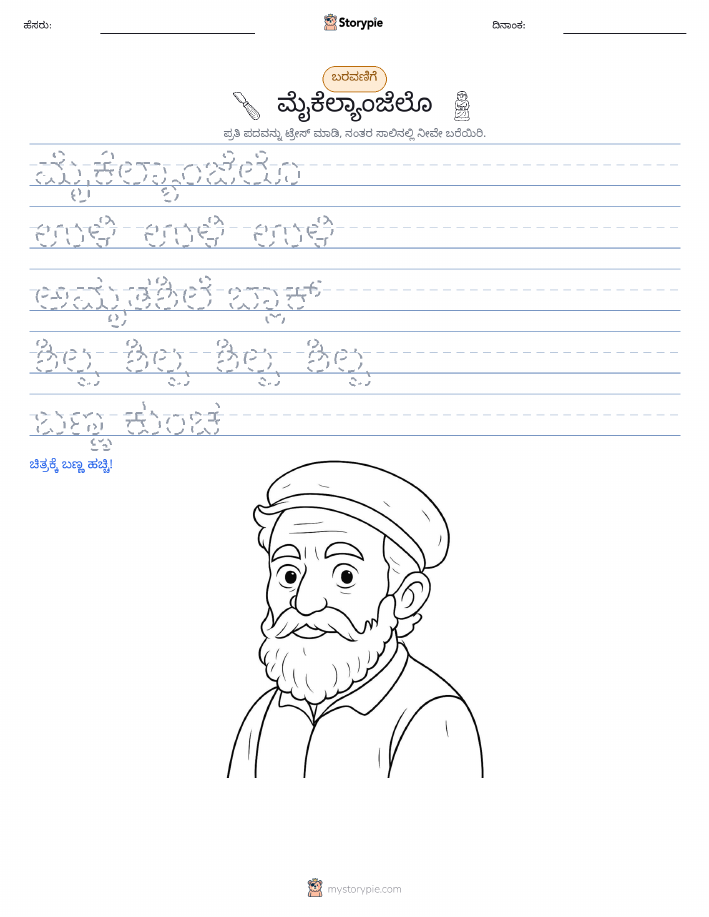 ಹೆಸರು:
Storypie
ದಿನಾಂಕ:
ಬರವಣಿಗೆ
ಮೈಕೆಲ್ಯಾಂಜೆಲೊ
ಪ್ರತಿ ಪದವನ್ನು ಟ್ರೇಸ್ ಮಾಡಿ, ನಂತರ ಸಾಲಿನಲ್ಲಿ ನೀವೇ ಬರೆಯಿರಿ.
ಮೈಕೆಲ್ಯಾಂಜೆಲೊ
ಉಳಿ ಉಳಿ ಉಳಿ
ಅಮೃತಶಿಲೆ ಬ್ಲಾಕ್
ಶಿಲ್ಪ ಶಿಲ್ಪ ಶಿಲ್ಪ ಶಿಲ್ಪ
ಬಣ್ಣ ಕುಂಚ
ಚಿತ್ರಕ್ಕೆ ಬಣ್ಣ ಹಚ್ಚಿ!
mystorypie.com